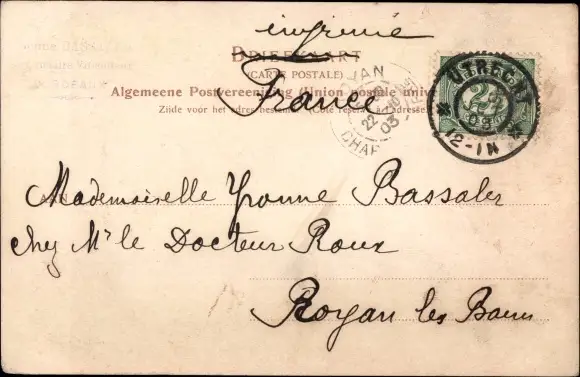 imprimé
BRIEFKAART
(CARTE POSTALE)
Algemeene Postvereeniging (Union postale univ
Zijde voor het adres bestemd. (Côté réservé à l'adresse)
France
UTRECHT
12-1N
22
03
2½
Mademoiselle Yvonne Bassaler
chez Mr le Docteur Roux
Royan les Bains